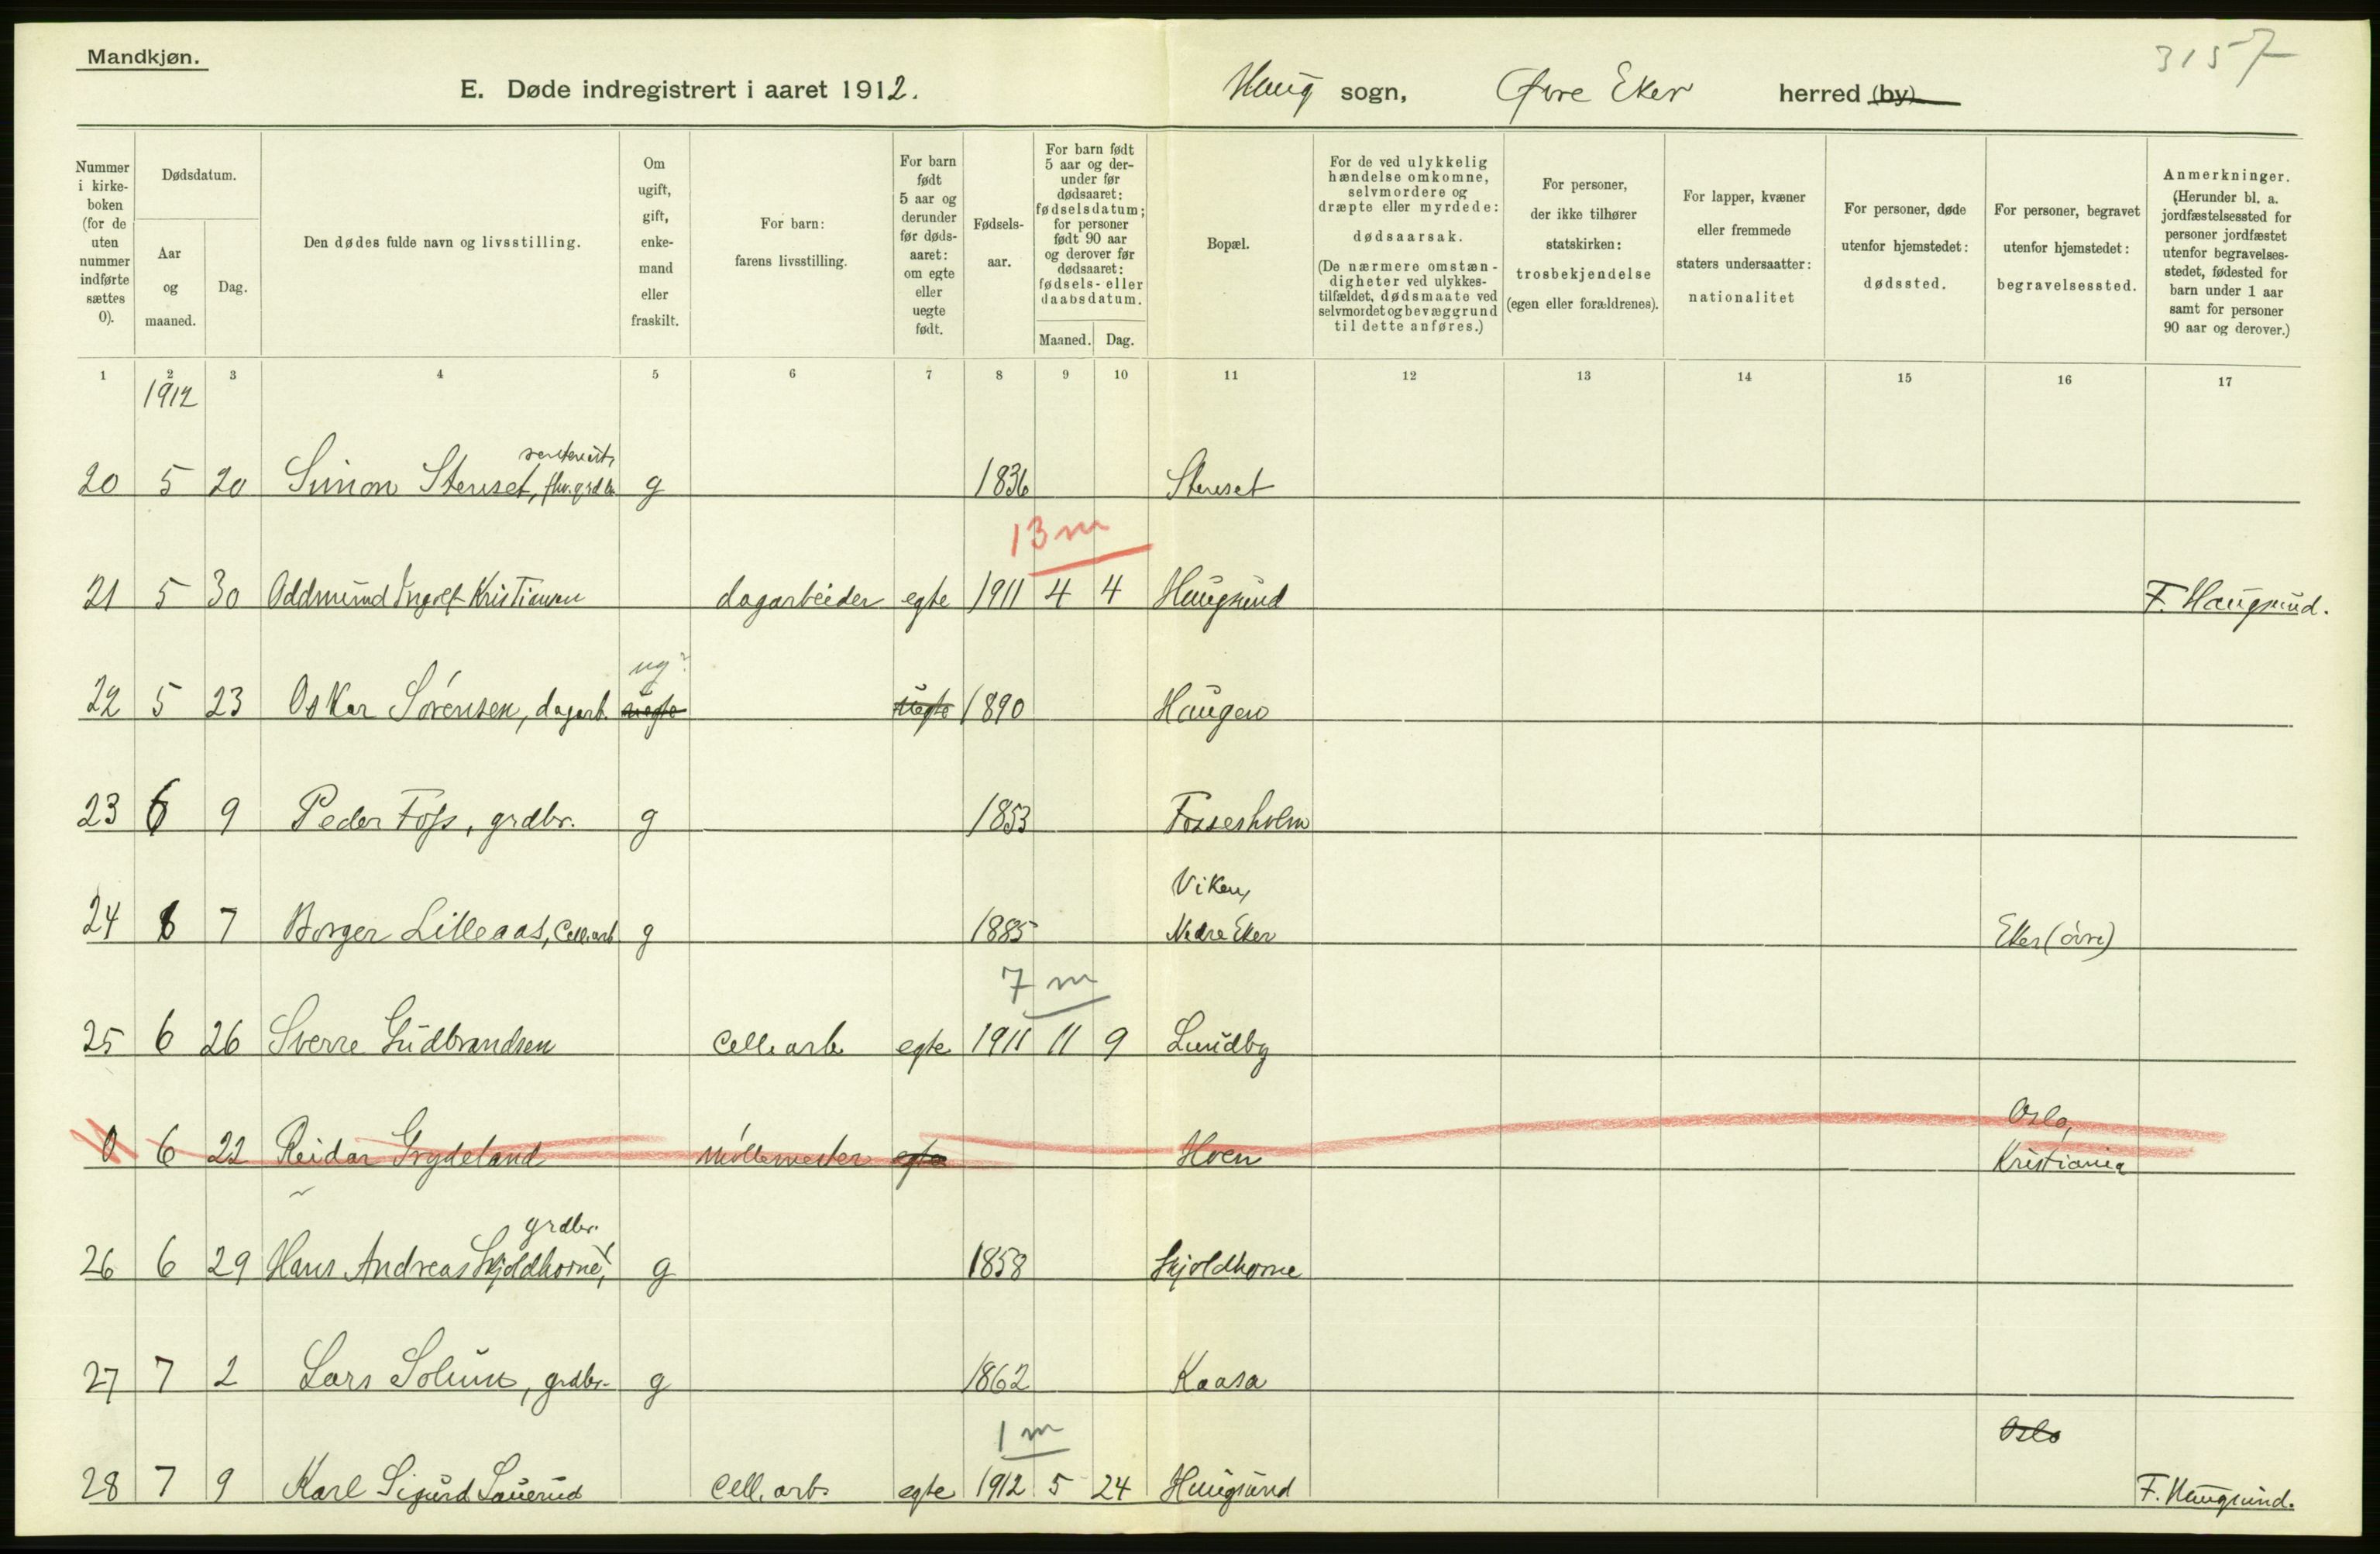 Mandkjøn.
3157
E. Døde indregistrert i aaret 1912. Haug sogn, Øvre Eker herred (by)
Nummer i kirke- boken (for de uten nummer indførte sættes 0).
Dødsdatum.
Aar og maaned.
Dag.
Den dødes fulde navn og livsstilling.
Om ugift, gift, enke- mand eller fraskilt.
For barn: farens livsstilling.
For barn født 5 aar og derunder før døds- aaret: om egte eller uegte født.
Fødsels- aar.
For barn født 5 aar og der- under før dødsaaret: fødselsdatum; for personer født 90 aar og derover før dødsaaret: fødsels- eller daabsdatum.
Maaned. Dag.
Bopæl.
For de ved ulykkelig hændelse omkomne, selvmordere og dræpte eller myrdede: dødsaarsak. (De nærmere omstæn- digheter ved ulykkes- tilfældet, dødsmaate ved selvmordet og bevæggrund til dette anføres.)
For personer, der ikke tilhører statskirken: trosbekjendelse (egen eller forældrenes).
For lapper, kvæner eller fremmede staters undersaatter: nationalitet
For personer, døde utenfor hjemstedet: dødssted.
For personer, begravet utenfor hjemstedet: begravelsessted.
Anmerkninger. (Herunder bl. a. jordfæstelsessted for personer jordfæstet utenfor begravelses- stedet, fødested for barn under 1 aar samt for personer 90 aar og derover.)
1 2 3 4 5 6 7 8 9 10 11 12 13 14 15 16 17
1912
20 5 20 Simon Stenset, flw. grdbr g 1836 Stenset
13 m
21 5 30 Oddmund Ingolf Kristiansen dagarbeider egte 1911 4 4 Haugsund F. Haugsund.
ug?
22 5 23 Oskar Sørensen, dagarb. uegte uegte 1890 Haugen
23 6 9 Peder Foss, grdbr. g 1853 Fossesholm
Viken,
24 6 7 Borger Lilleaas, Cell.arb g 1885 Nedre Eker Eker (øvre)
7 m
25 6 26 Sverre Gudbrandsen Cell. arb egte 1911 11 9 Lundby
Oslo,
0 6 22 Reidar Grydeland Møllemester egte Hoen Kristiania
grdbr.
26 6 29 Hans Andreas Skjoldhorne, g 1858 Skjoldhorne
27 7 2 Lars Solum, grdbr. g 1862 Kaasa
1 m
Oslo
28 7 9 Karl Sigurd Sauerud Cell. arb. egte 1912 5 24 Haugsund F. Haugsund.